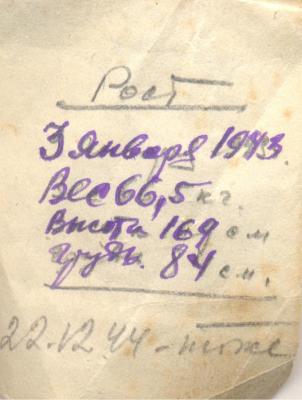 Рост
3 января 1943.
Вес 66,5 кг.
Высота 169 см
грудь. 84 см.
22.12.44 - тоже